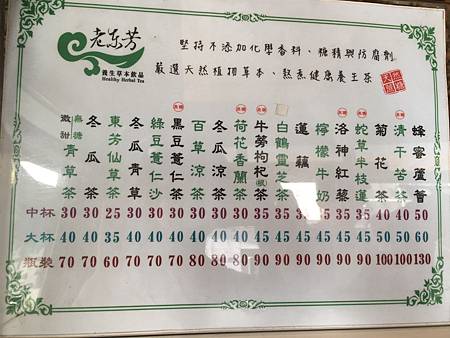 老东芳
養生草本飲品
Healthy Herbal Tea
堅持不添加化學香料、糖精與防腐劑
嚴選天然植物草本、熬煮健康養生茶
無糖
微甜
青草茶
冬瓜茶
東芳仙草茶
冬瓜青草
綠豆薏仁沙
黑豆薏仁茶
百草涼茶
冬瓜涼茶
荷花香蘭茶
牛蒡枸杞茶
白鶴靈芝茶
蓮藕茶
檸檬牛奶
洛神紅藜
蛇草半枝蓮
菊花茶
清干苦茶
蜂蜜蘆薈
中杯 30 30 25 30 30 30 30 30 30 35 35 35 35 35 35 40 40 50
大杯 40 40 35 40 40 40 40 40 40 45 45 45 45 45 45 50 50 60
瓶裝 70 70 60 70 70 70 80 80 80 90 90 90 90 90 90 100 100 130